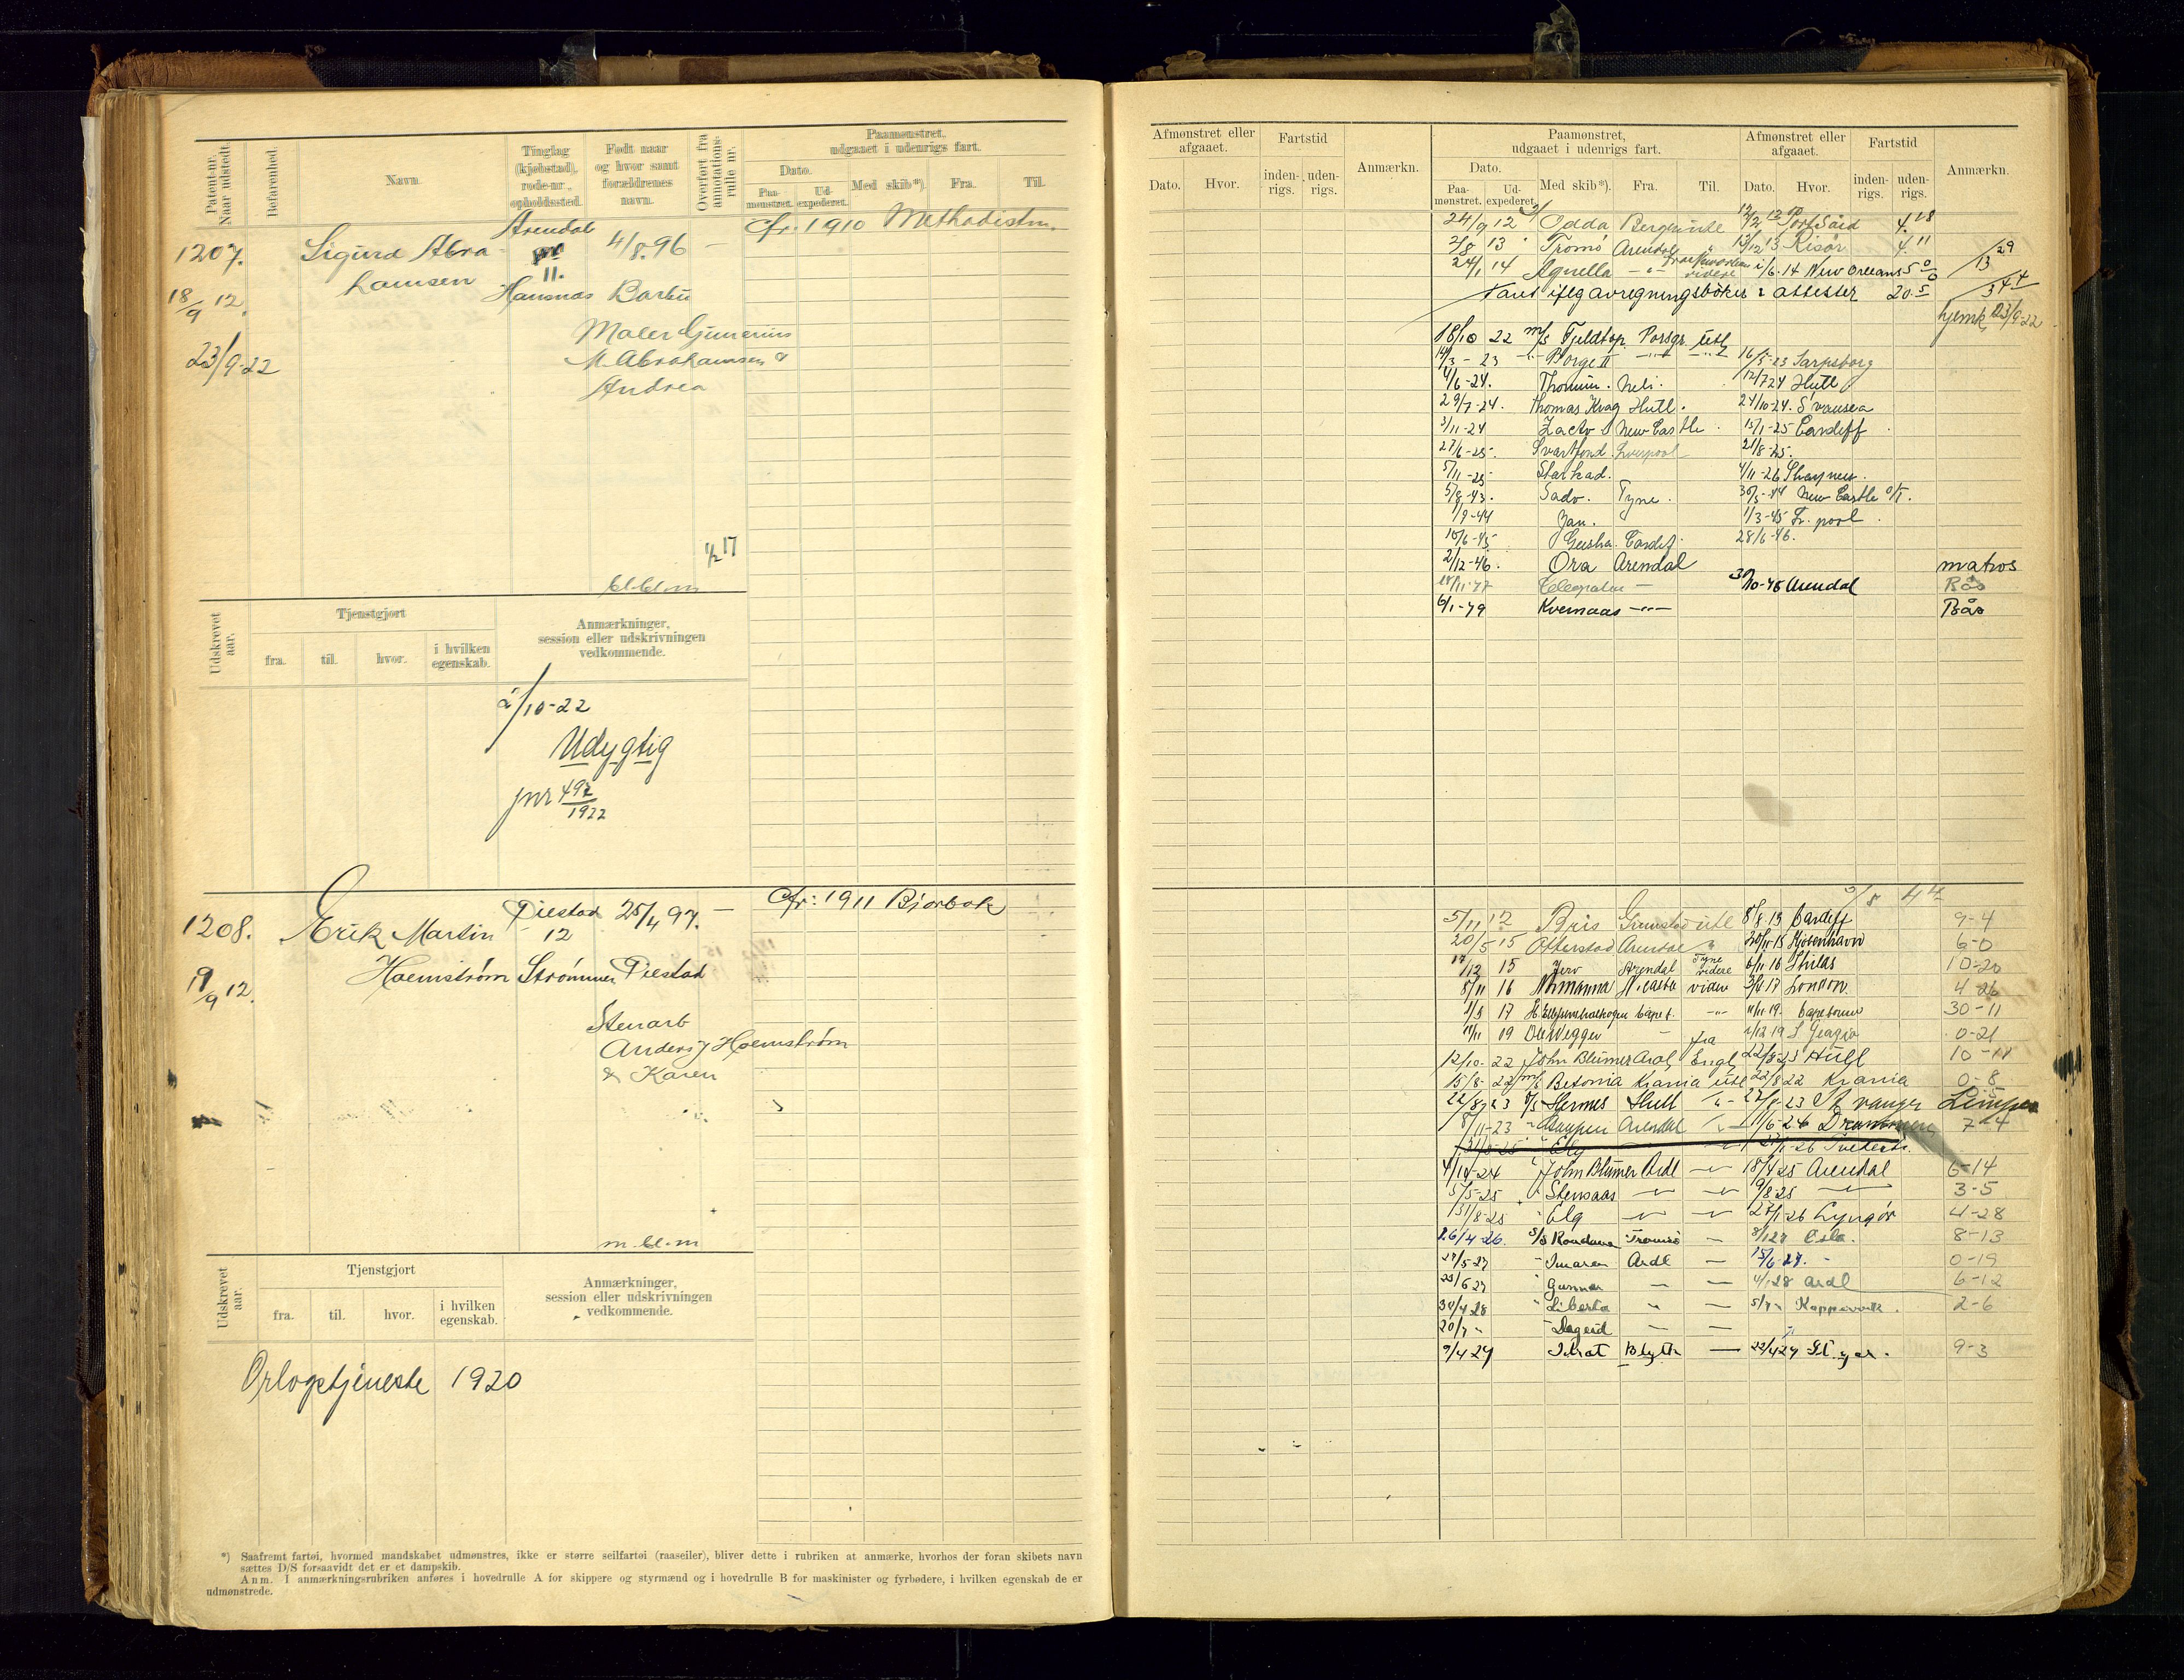 Patent-nr. Naar udstedt.
Befarenhed.
Navn.
Tinglag (kjøbstad), rode-nr., opholdssted.
Født naar og hvor samt forældrenes navn.
Overført fra annotations-rulle nr.
Paamønstret, udgaaet i udenrigs fart.
Dato.
Paa-mønstret.
Ud-expederet.
Med skib*).
Fra.
Til.
1207.
18/9 12.
23/9-22
Sigurd Abra-
hamsen
Arendal
11.
Hansnæs
4/8.96 –
Barbu
Maler Gunerius
M. Abrahamsen &
Andrea
Cfr: 1910 Methodistm.
1/2 17
bl-bl-m
Udskrevet aar.
Tjenstgjort
fra.
til.
hvor.
i hvilken egenskab.
Anmærkninger, session eller udskrivningen vedkommende.
2/10-22
Udygtig
jnr 492/1922
1208.
19/9 12.
Erik Martin
Holmstrøm
Øiestad
12
Strømmen
25/4 97. –
Øiestad
Stenarb
Anders J Holmstrøm
& Karen
Cfr: 1911 Bjorbæk
m-bl-m
Udskrevet aar.
Tjenstgjort
fra.
til.
hvor.
i hvilken egenskab.
Anmærkninger, session eller udskrivningen vedkommende.
Orlogstjeneste 1920
*) Saafremt fartøi, hvormed mandskabet udmønstres, ikke er større seilfartøi (raaseiler), bliver dette i rubriken at anmærke, hvorhos der foran skibets navn
sættes D/S forsaavidt det er et dampskib.
Anm. I anmærkningsrubriken anføres i hovedrulle A for skippere og styrmænd og i hovedrulle B for maskinister og fyrbødere, i hvilken egenskab de er
udmønstrede.
Afmønstret eller afgaaet.
Dato.
Hvor.
Fartstid
inden-rigs.
uden-rigs.
Anmærkn.
Paamønstret, udgaaet i udenrigs fart.
Dato.
Paa-mønstret.
Ud-expederet.
Med skib*).
Fra.
Til.
Afmønstret eller afgaaet.
Dato.
Hvor.
Fartstid
inden-rigs.
uden-rigs.
Anmærkn.
24/9 12 Odda Bergen utl 12/2 13 Port Said 4.18
2/8 13 Tromø Arendal " 13/12 13 Risør 4.11
24/1 14 Agnella – " – videre 1/6-14 New Orleans 5 0/0
29/13
Fart iflg avregningsbøker & attester 20.5
hjemk 23/9-22
18/10 22 m/s Fjeldtop Porsgr. utl
14/3-23 – " – Borge II – " – – " – 16/5-23 Sarpsborg
4/6-24. Thomm. 12/7 24 Hull
29/7-24. Thomas Krag Hull. 24/10-24. Svansea
3/11-24 New Castle 15/1-25 Cardiff
27/6-25. Svartfond. Liverpool 21/8-25.
5/11-25 Starkad. 4/11-26
5/8-43. Sado. Tyne. 30/5-44 New Castle o/T.
1/9-44 Jan. 1/3-45 L. pool.
10/6-45 Geisha. Cardif. 28/6-46.
2/12-46. Ora Arendal matros
11/11-47 30/10-48 Arendal Bås
6/1-49 Kvernaas – " – Bås
5/11 12 Bris Grimstad utl 8/8.13 Cardiff 9-4
20/5 15 Ofterstad Arendal " 20/11-15 Kjøbenhavn 6-0
17/12 15 Jerv Arendal Tyne videre 6/11 16 Shilds 10-20
8/11 16 Normanna videre 3/4 17 London. 4-26
1/5 17 – " – 11/11.19. Capetown 30-11
11/11 19 Ole Wegger – 2/12 19 S Georgia 0-21
12/10-22 John Blumer Aral fra Engl 22/8-23 Hull 10-11
15/8-22 m/s Betonia Krania utl 22/8 22 Krania 0-8
22/8 23 s/s Hermes Hull – " – 27/8-23 St vanger
8/11-23 Arendal 11/6-24 Drammen 7-4
31/8-25 Elg 27/1-26 Tvedestr.
4/10-24 John Blumer Ardl – " – 18/4 25 Arendal 6-14
5/5-25 Stensaas – " – – " – 9/8 25 – " – 3-5
31/8-25 " Elg – " – – " – 27/1-26 Lyngør 4-28
26/4-26. s/s Rondane Tromsø – 8/1 27 Oslo. 8-13
27/5-27 " Imaren Ardl – 15/6-27. 0-19
23/6 27 " Gunnar – – 4/1 28 Ardl 6-12
30/4 28 " Liberta " – 5/7 " Koppervik. 2-6
20/7 " " Dageid – –
9/4 29 Blyth – 22/4 29 9-3